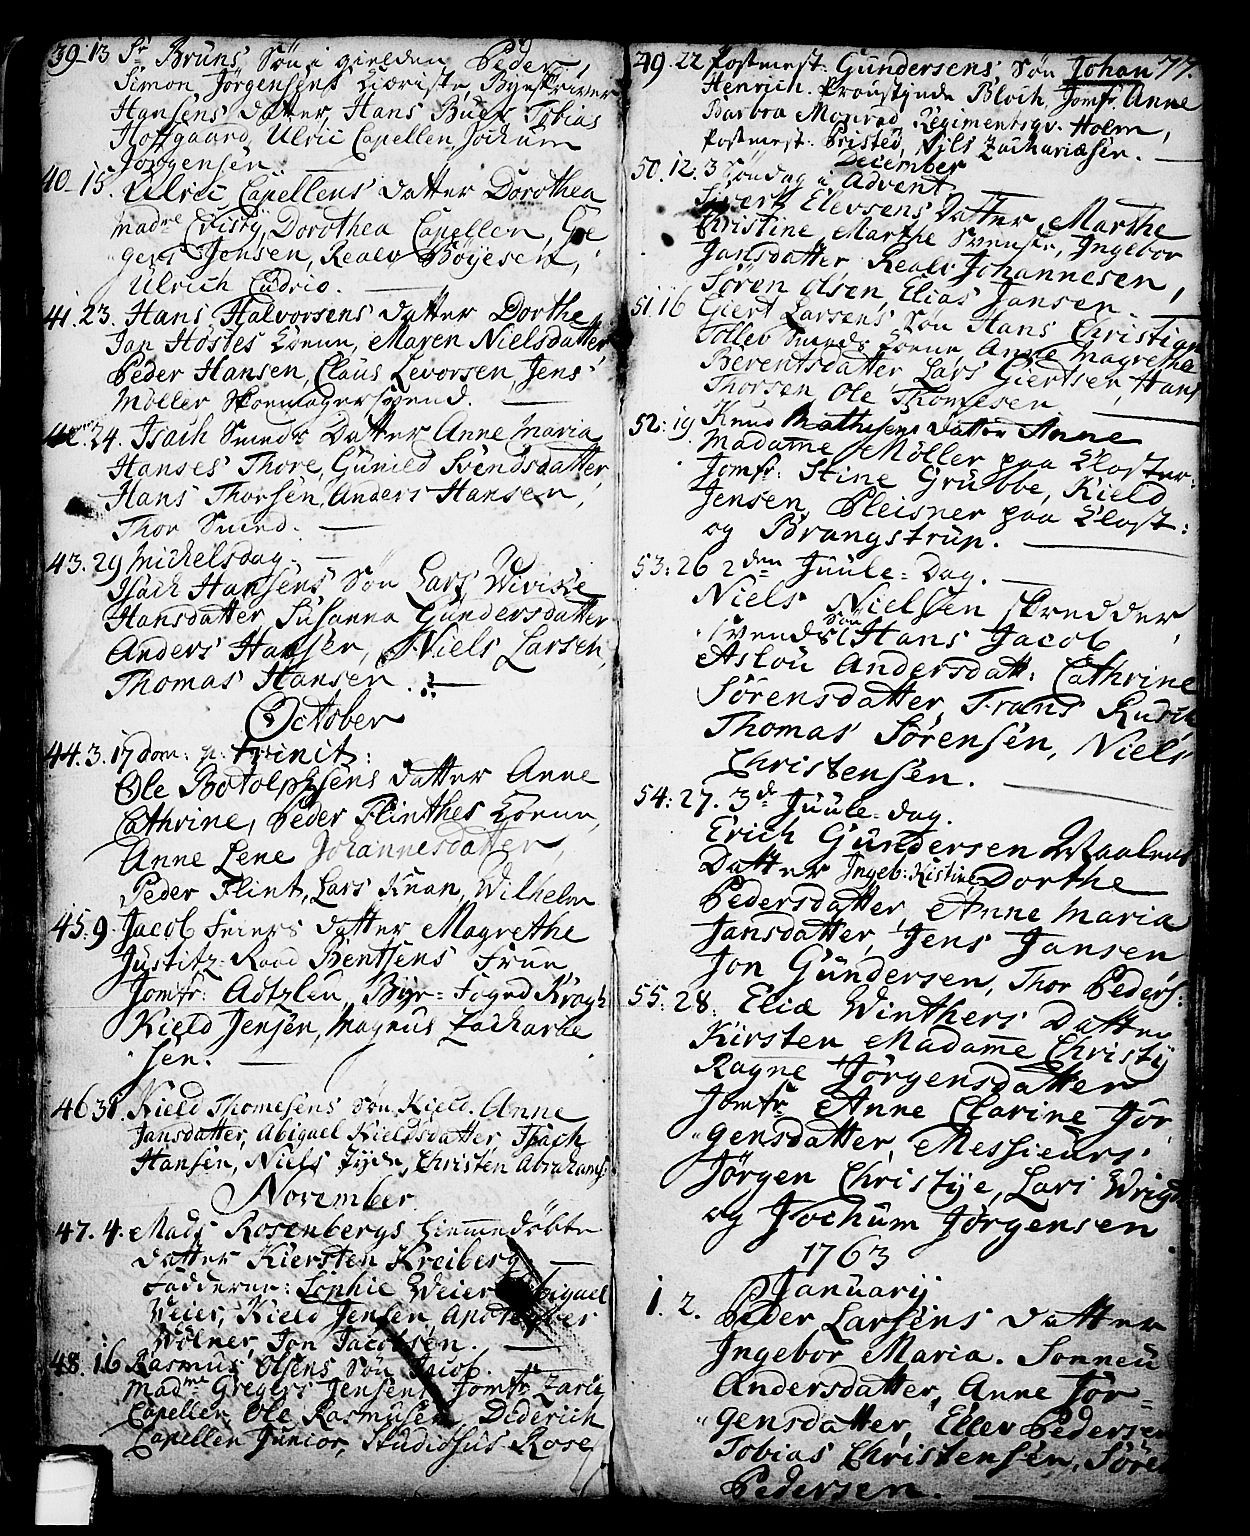 39. 13 Sr Bruns Søn i gielden Peder,
Simon Jørgensens Kieriste, Byeskriver
Hansens Datter, Hans Buer Tobias
Hofgaard, Ulric Capellen, Jochum
Jørgensen
40. 15. Ulric Capellens datter Dorothea
madme Dorothea Capellen,
Jensen, Realv Bøyesen,
Ulrich Cudrio.
41. 23. Hans Halvorsens datter Dorthe
Jan Hostes Koene, Maren Nielsdatter,
Peder Hansen, Claus Levorsen, Jens
Møller Skoemagersvend.
42. 24. Isach Smeds Datter Anne Maria
Hanses Thore, Gunild Svendsdatter,
Hans Thorsen, Anders Hansen,
Thor Smed.
43. 29 Michelsdag.
Isach Hansens Søn Lars, Wiviche
Hansdatter, Susanna Gundersdatter
Anders Hansen, Niels Larsen,
Thomas Hansen.
October
44. 3. 17 dom: p: trinit:
Ole Botolphsens datter Anne
Cathrine, Peder Flinthes Koene,
Anne Lene Johannesdatter,
Peder Flint, Lars Knan, Wilhelm
45. 9. Jacob Feiers datter Magrethe
Justitz Raad Bentsens Frue
Jomfr: Adtzlen, Bye-Foged Kragh
Kield Jensen, Magnus Zacharie
sen.
46 31. Kield Thomesens Søn Kield. Anne
Jansdatter, Abigael Kieldsdatter Isach
Hansen, Niels Jyde, Christen Abrahams:
November
47. 4. Mads Rosenbergs hiemmedøbte
datter Kiersten Kreiberg
Fadderne: Sophie Weier Abigael
Weier, Kield Jensen, Apotecher
Wølner, Jon Jacobsen.
48. 16 Rasmus Olsens Søn Jacob.
madme Gregers Jensen, Jomfr Zarig
Capellen, Ole Rasmusen, Diderich
Capellen Junior, Studiosus Rose
77.
49. 22 Postmest: Gundersens Søn Johan
Henrich. Proustinde Bloch, Jomfr Anne
Barbra Monrad, Regimentsqv. Holm,
Postmest: Pristed, Nils Zachariæsen.
December
50. 12. 3 Søndag i Advent
Sivert Elevsens Datter Marthe
Christine, Marthe Svensdr, Ingebor
Jansdatter Realv Johannesen,
Søren Olsen, Elias Jansen
51. 16 Giert Larsens Søn Hans Christian
Tollev Smeds Koene, Anne Magrethe
Berentsdatter Lars Giertsen, Hans
Thorsen, Ole Thomesen
52. 19 Knud Mathisens datter Anne
Madamme Møller paa Closter.
Jomfr: Stine Grubbe, Kield
Jensen, Pleisner paa Clost:
og Brangstrup.
53. 26 2den Juule-Dag.
Niels Nielsen skredder
svends Søn Hans Jacob
Aslou Andersdatt: Cathrine
Sørensdatter, Frans Kusch
Thomas Sørensen, Niels
Christensen.
54. 27. 3de Juule-dag.
Erich Gundersen Waalers
Datter Ingeb: Kistine Dorthe
Pedersdatter, Anne Maria
Jansdatter, Jens Jansen
Jon Gundersen, Thor Peders:
55. 28. Eliæ Winthers Datter
Kirsten Madamme Christy
Ragne Jørgensdatter
Jomfr Anne Clarine Jør
gensdatter, Messieurs.
Jørgen Christye, Lars Wright
og Jochum Jørgensen
1763
Januarij
1. 2. Peder Larsens datter
Ingebor Maria. Sonneu
Andersdatter, Anne Jør-
gensdatter, Ellev Pedersen
Tobias Christensen, Søren
Pedersen.